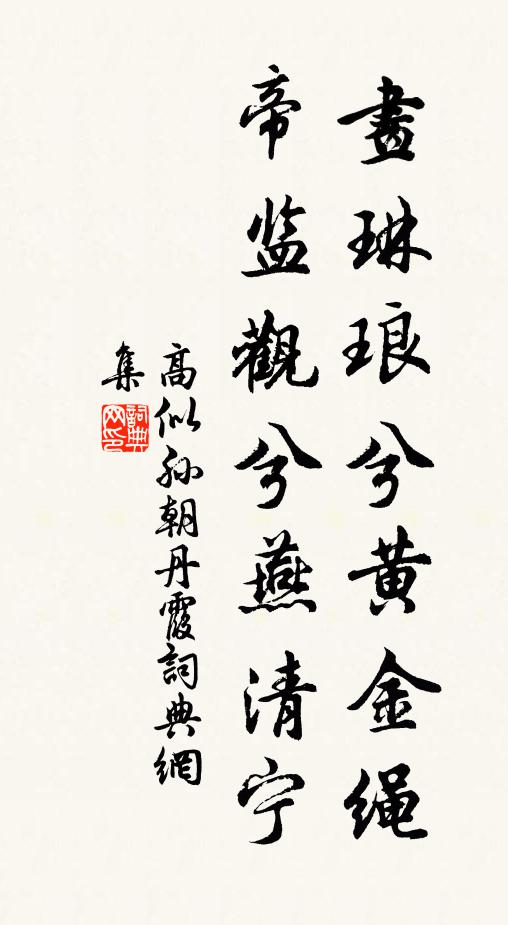 畫琳琅兮黄金绳
帝监觀兮燕清宁
高似孙朝丹霞詞典網
集
詞典网印